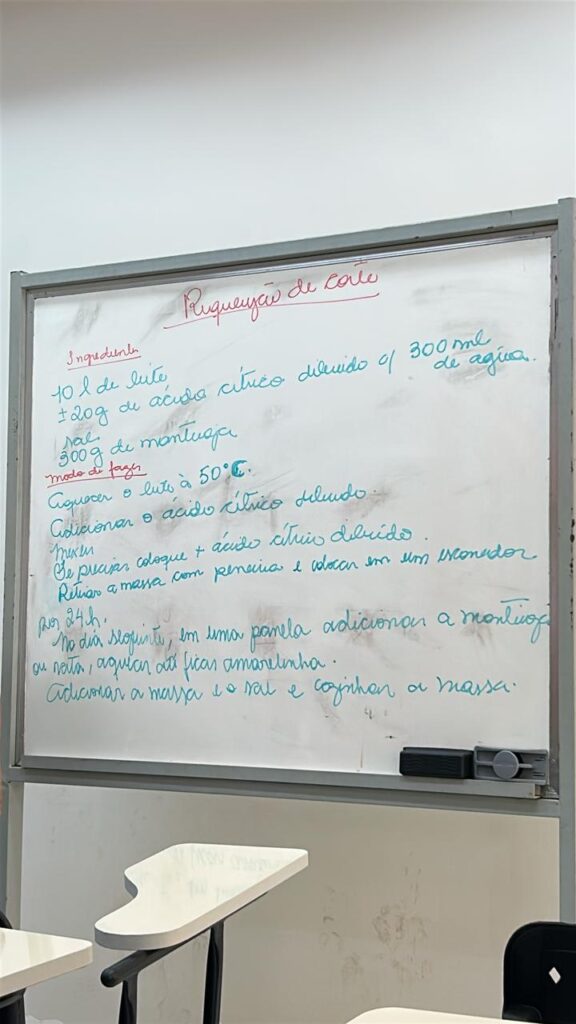 Requeijão de corte
Ingredientes
10 l de leite
±20g de ácido cítrico diluido c/ 300 ml
de água.
sal
300g de manteiga
modo de fazer
Aquecer o leite à 50°C.
Adicionar o ácido cítrico diluido.
mexer
Se precisar coloque + ácido cítrico diluído.
Retirar a massa com peneira e colocar em um escorredor
por 24h.
No dia seguinte, em uma panela adicionar a manteiga
ou nata, aquecer até ficar amarelinha.
Adicionar a massa e o sal e cozinhar a massa.